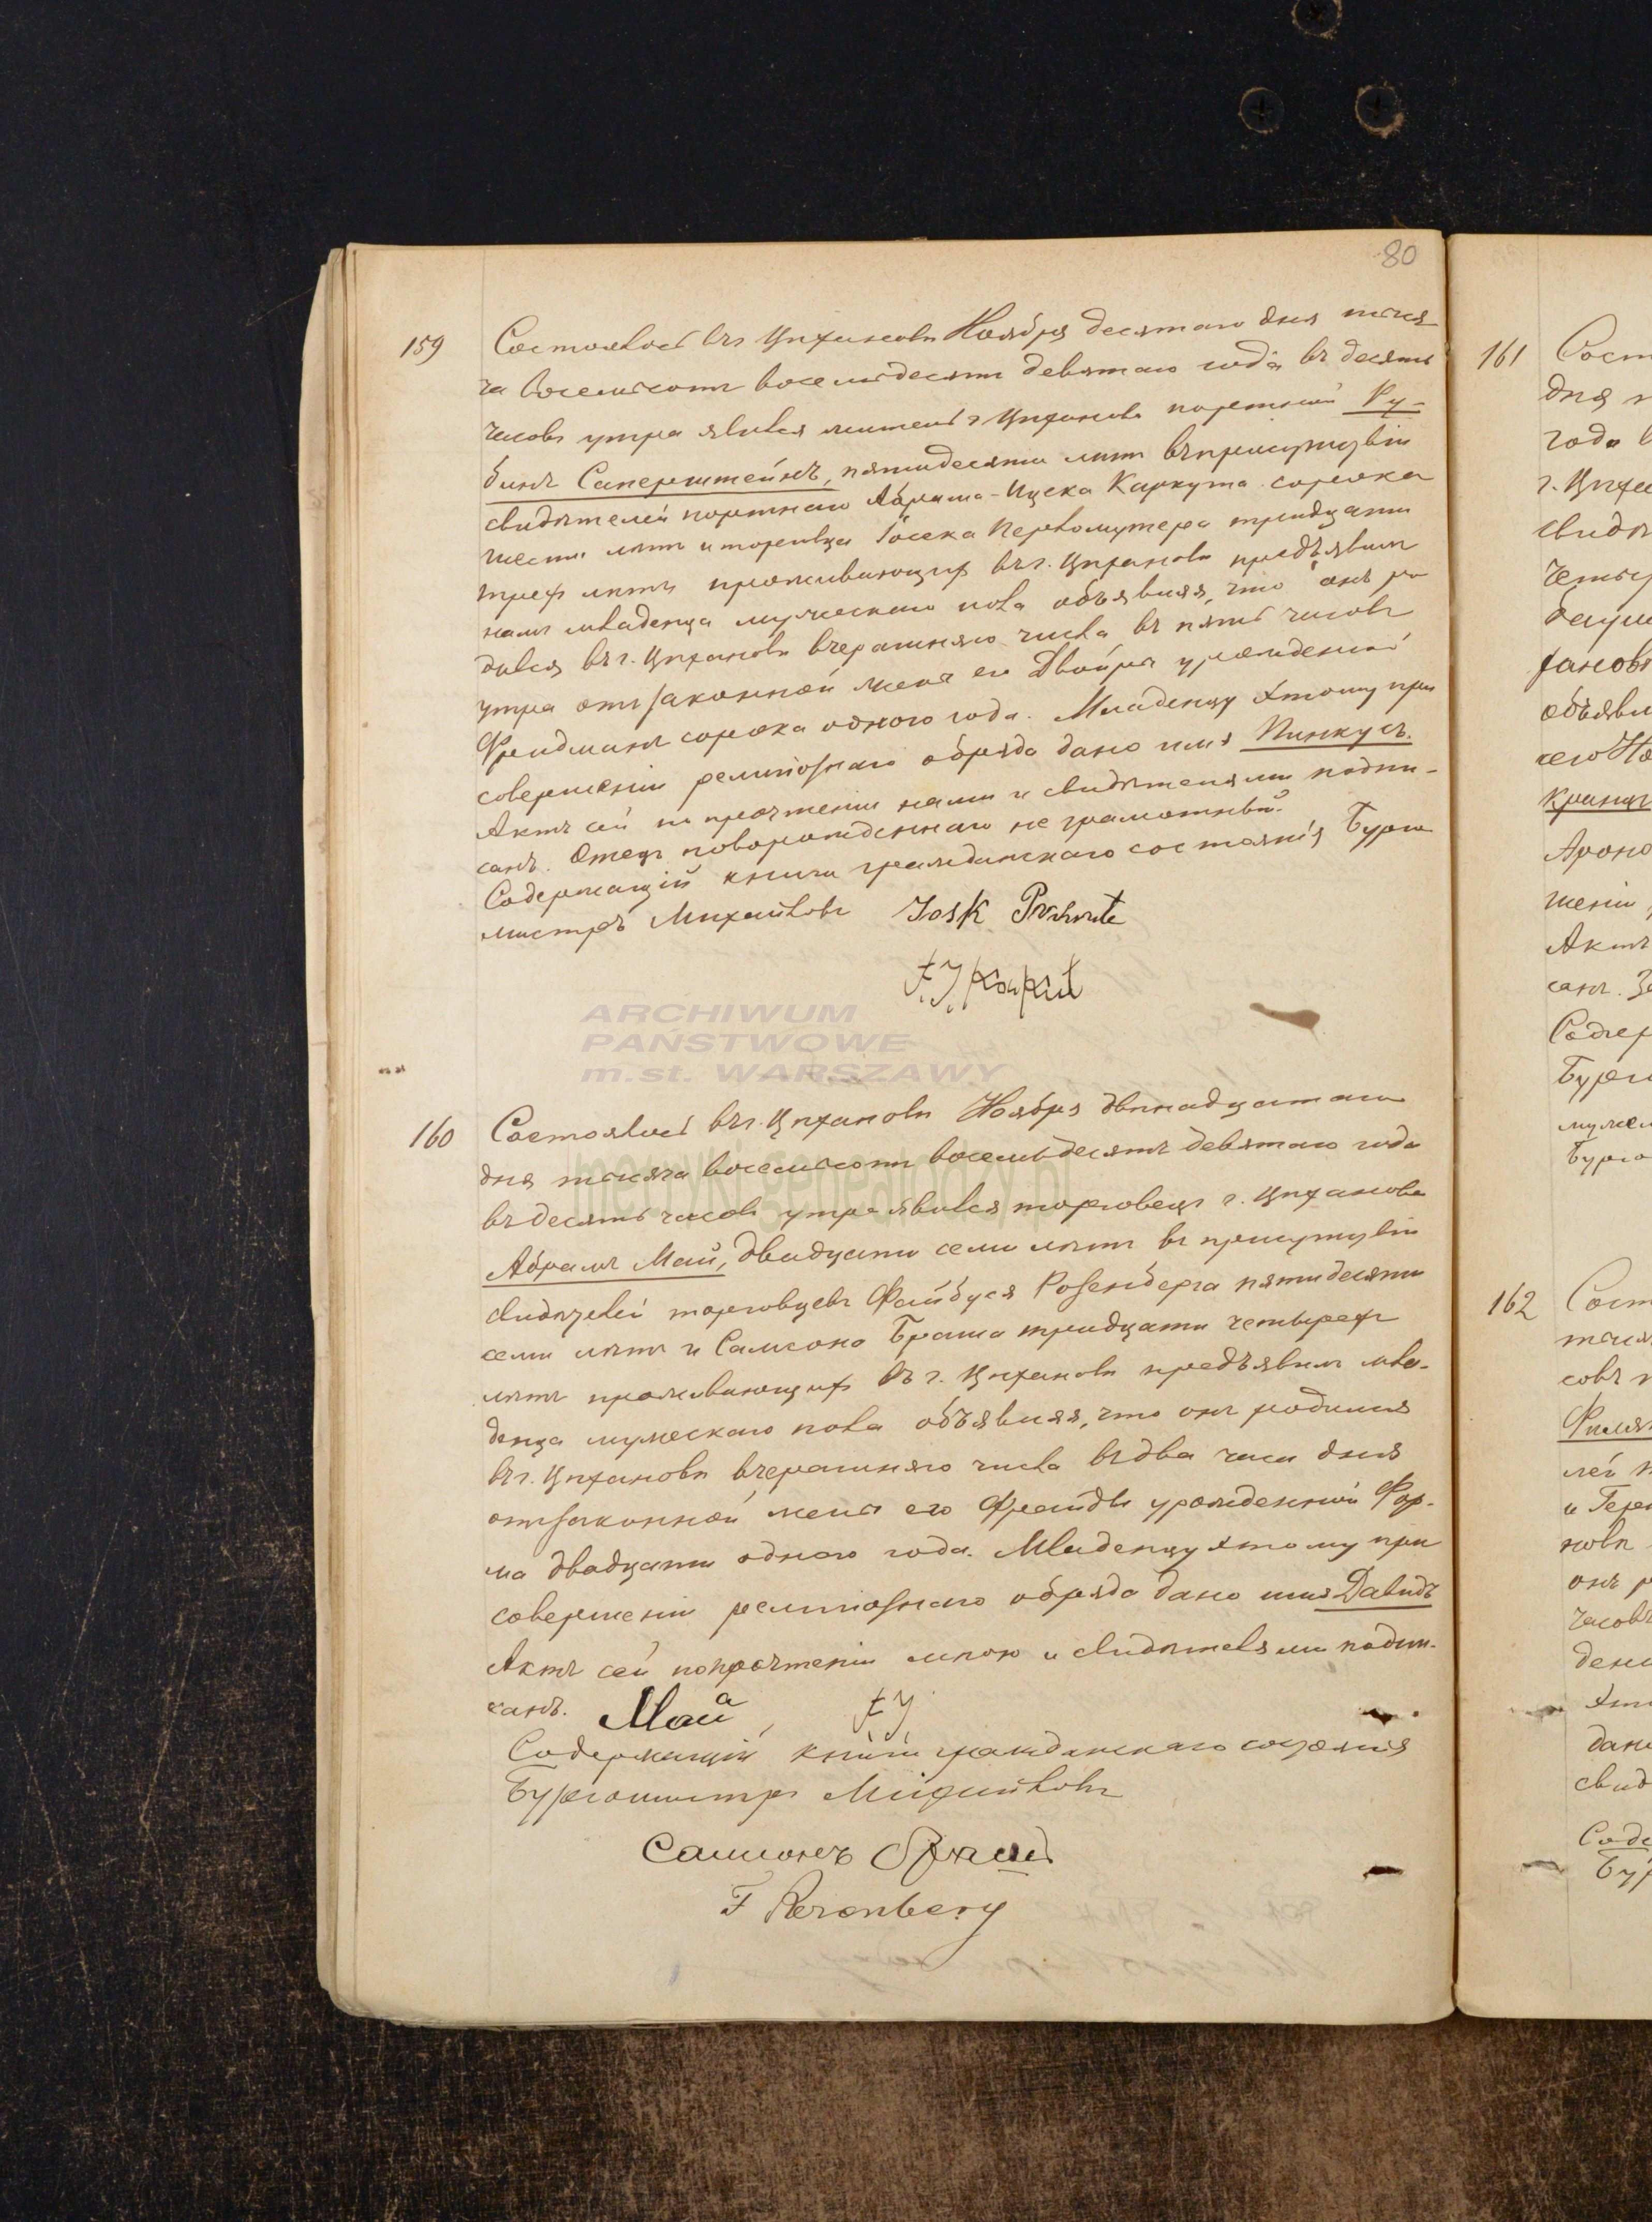 80
159
Состоялось въ Цѣхановѣ Ноября десятаго дня тыся-
ча восемьсотъ восемьдесятъ девятаго года въ десять
часовъ утра явился житель г Цѣханова портной Ру-
бинъ Саперштейнъ, пятидесяти лѣтъ въ присутствіи
свидѣтелей портнаго Абрама-Ицека Каркута сорока
шести лѣтъ и торговца Іосека Перкомутера тридцати
трехъ лѣтъ проживающихъ въ г. Цѣхановѣ предъявилъ
намъ младенца мужескаго пола объявляя, что онъ ро
дился въ г. Цѣхановѣ вчерашняго числа въ пять часовъ
утра отъ законной жены его Двойры урожденной
Фридманъ сорока одного года. Младенцу этому при
совершеніи религіознаго обряда дано имя Пинкусъ.
Актъ сей по прочтеніи нами и свидѣтелями подпи-
санъ. Отецъ новорожденнаго не грамотный.
Содержащій книги гражданскаго состоянія Бурго
мистръ Михайловъ Josk
ARCHIWUM
PAŃSTWOWE
m.st. WARSZAWY
160
Состоялось въ г. Цѣхановѣ Ноября двѣнадцатаго
дня тысяча восемьсотъ восемьдесятъ девятаго года
въ десять часовъ утра явился торговецъ г. Цѣханова
Абрамъ Май, двадцати семи лѣтъ въ присутствіи
свидѣтелей торговцевъ Файбуся Розенберга пятидесяти
семи лѣтъ и Самсона Браша тридцати четырехъ
лѣтъ проживающихъ въ г. Цѣхановѣ предъявилъ мла-
денца мужескаго пола объявляя, что онъ родился
въ г. Цѣхановѣ вчерашняго числа въ два часа дня
отъ законной жены его Фрайды урожденной Фор-
ма двадцати одного года. Младенцу этому при
совершеніи религіознаго обряда дано имя Давидъ
Актъ сей по прочтеніи мною и свидѣтелями подпи-
санъ. Май
metryki.genealodzy.pl
Содержащій книги гражданскаго состоянія
Бургомистръ Михайловъ
F Rozenberg
161
дня
года
г. Цѣха
162